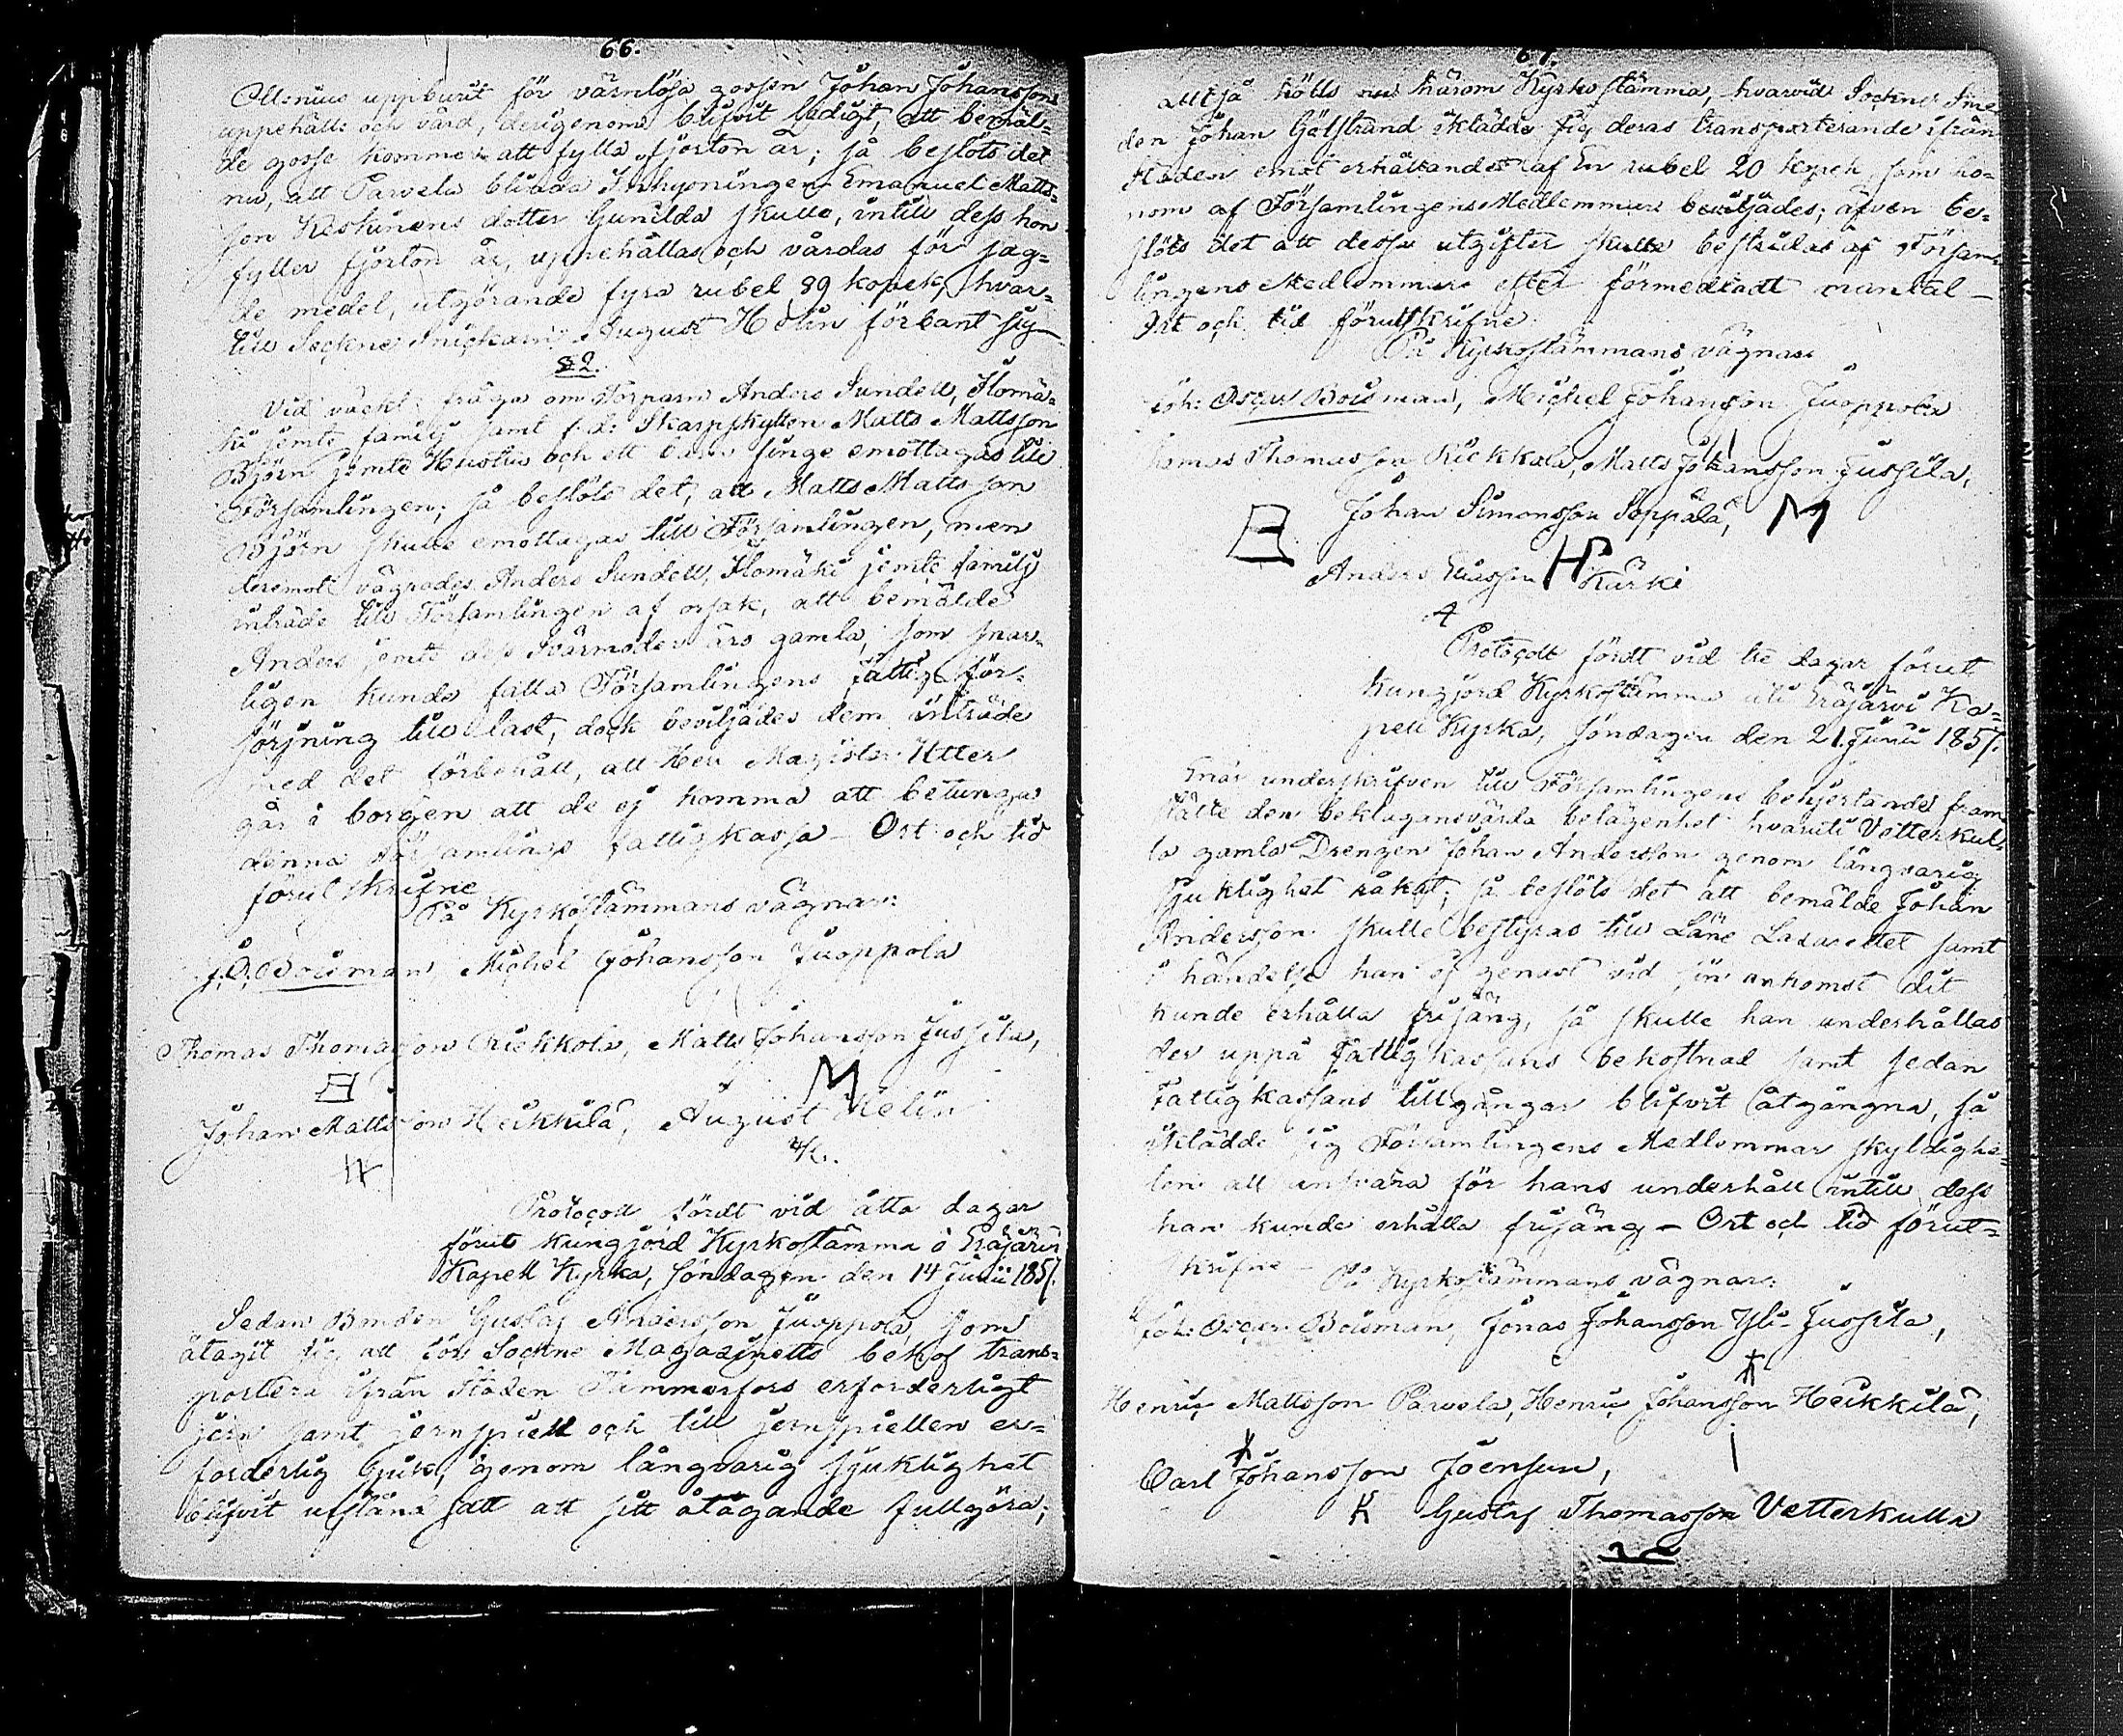 66.
Ollonius uppburit för värnlösa gossen Johan Johanssons
uppehälle och vård, derigenom blifvit ledigt, att bemäl-
de gosse kommer att fylla fjorton år; så beslöts det
nu, att Parvela blinda Inhysningen Emanuel Matts-
son Keskinens dotter Gunilda skulle, intill dess hon
fyller fjorton år, uppehållas och vårdas för sag-
de medel, utgörande fyra rubel 89 kopek, hvar-
till Sockne Snickarn August Helin förbant sig
§ 2.
Vid väckt fråga om Torparn Anders Sundell, Ilomä-
ki jemte familj samt f.d. Skarpskytten Matts Mattsson
Björn jemte Hustru och ett barn finge emottagas till
Församlingen; så beslöts det, att Matts Mattsson
Björn skulle emottagas till Församlingen, men
deremot vägrades Anders Sundell, Ilomäki jemte familj
inträde till Församlingen af orsak, att bemälde
Anders jemte dess Svärmoder äro gamla, som snar-
ligen kunde falla Församlingens fattig för-
sörjning till last, dock beviljades dem inträde
med det förbehåll, att Herr Magister Utter
går i borgen att de ej komma att betunga
denna Församlings fattigkassa – Ort och tid
förutskrifne
På Kyrkostämmans vägnar:
J. O. Boisman Michel Johansson Juoppola
Thomas Thomasson Riekkola, Matts Johansson Jussila,
M
Johan Mattsson Heikkilä, August Helin
Protocoll fördt vid åtta dagar
förut kungjord Kyrkostämma i Eräjärvi
Kapell Kyrka, söndagen den 14 Junii 1857.
Sedan Bonden Gustaf Andersson Juoppola, som
åtagit sig att för Sockne Magazinetts behof trans-
portera ifrån Staden Tammerfors erforderligt
jern samt jernspiell och till jernspiellen er-
forderlig bjuk, genom långvarig sjuklighet
blifvit utstånd satt att sitt åtagande fullgöra;
67.
Alltså hölls nu härom Kyrkostämma, hvarvid Sockne Sme-
den Johan Gölstrand iklädde sig deras transporterande ifrån
staden emot erhållandet af En rubel 20 kopek, som ho-
nom af Församlingens Medlemmar beviljades; äfven be-
slöts det att dessa utgifter skulle bestridas af Försam-
lingens Medlemmar efter förmedladt mantal –
Ort och tid förutskrifne
På Kyrkostämmans vägnar
Joh: Oscar Boisman, Michel Johansson Juoppola
Thomas Thomasson Riekkala, Matts Johansson Jussila,
Johan Simonsson Soppala, M
Anders Eliasson Kärki
Protocoll fördt vid tre dagar förut
kungjord Kyrkostämma uti Eräjärvi Ka-
pell Kyrka, söndagen den 21 Junii 1857.
Enär underskrifven till Församlingens behjertande fram-
stälte den beklagansvärda belägenhet hvaruti Vetterkul-
la gamla Drengen Johan Andersson genom långvarig
sjuklighet råkat; så beslöts det att bemälde Johan
Andersson skulle bestyras till Läne Lazarettet samt
i händelse han ej genast vid sin ankomst dit
kunde erhålla frisäng, så skulle han underhållas
der uppå Fattigkassans bekostnad samt sedan
Fattigkassans tillgångar blifvit åtgångna, så
iklädde sig Församlingens Medlemmar skyldighe-
ten att ansvara för hans underhåll intill dess
han kunde erhålla frisäng – Ort och tid förut-
skrifne – På Kyrkostämmans vägnar:
Joh: Oscar Boisman, Jonas Johansson Yli-Jussila,
Henric Mattsson Parvela, Henric Johansson Heikkilä,
Carl Johansson Joensuu,
K Gustaf Thomasson Vetterkulla